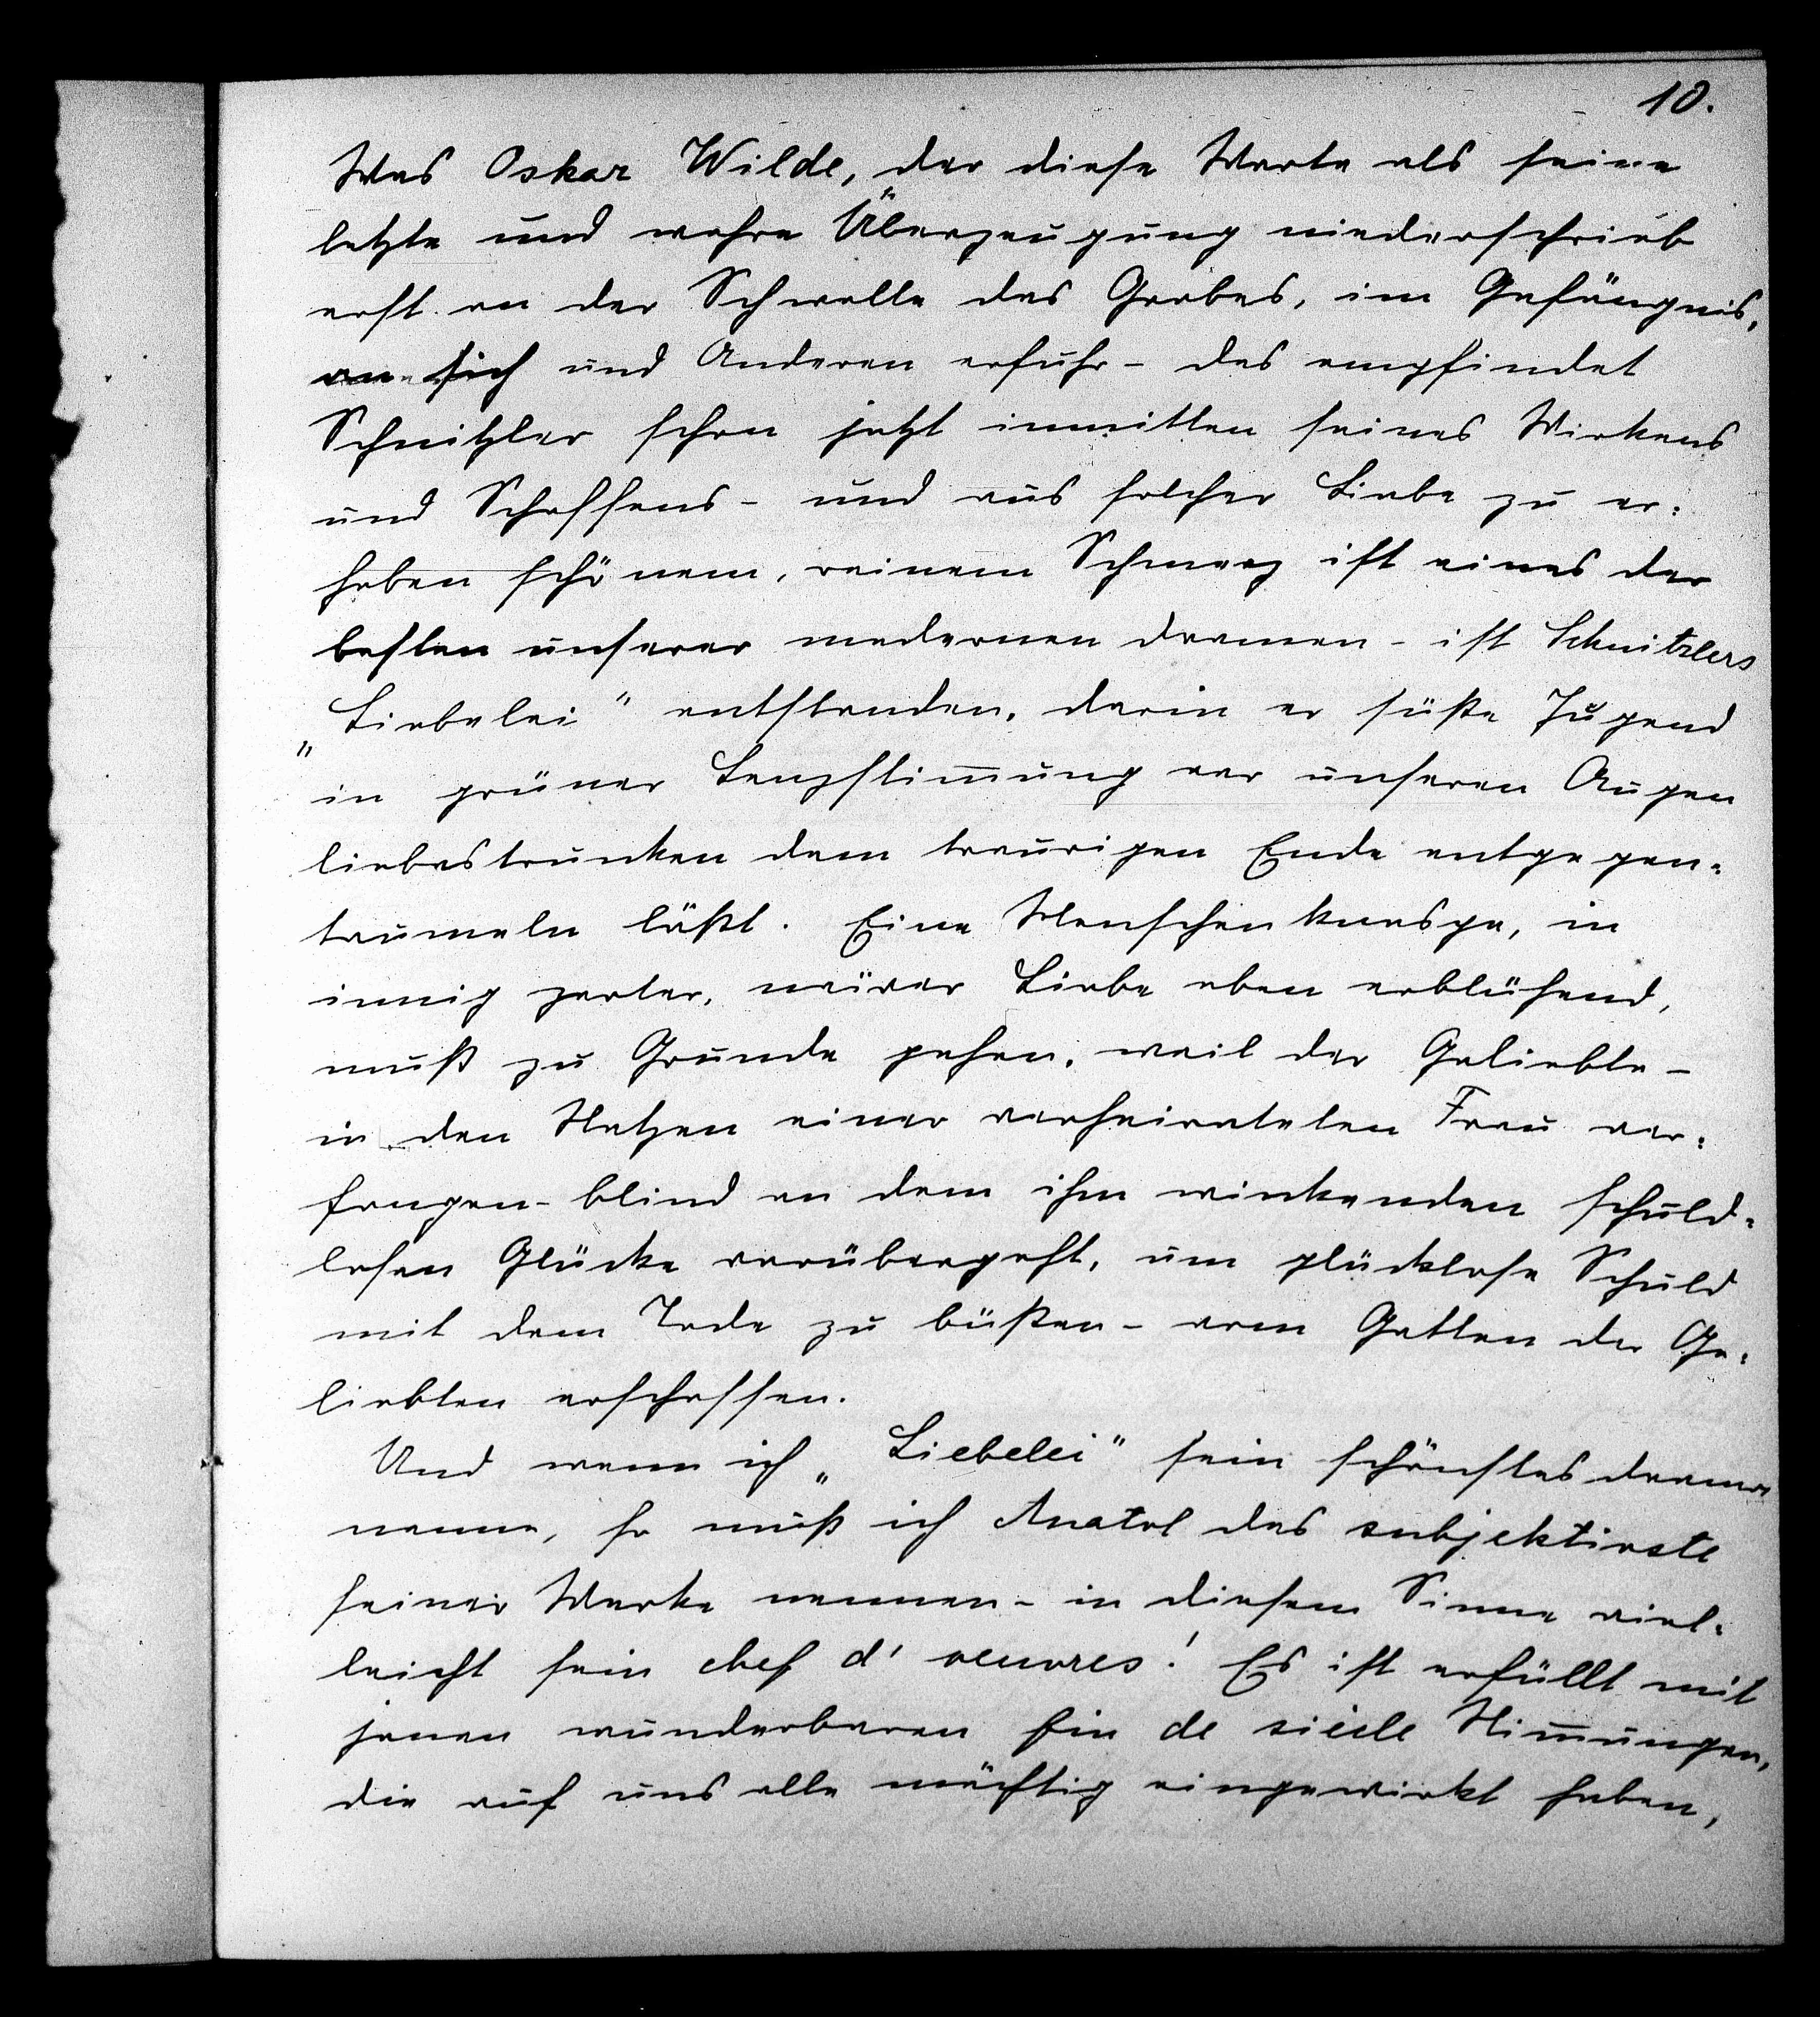 10.
Was Oskar Wilde, der diese Worte als seine
letzte und wahre Überzeugung niederschrieb
erst an der Schwelle des Grabes, im Gefängnis,
an sich und Anderen erfuhr - das empfindet
Schnitzler schon jetzt inmitten seines Wirkens
und Schaffens - und aus solcher Liebe zu er:
haben schönem, reinem Schmerz ist eines der
besten unserer modernen Dramen - ist Schnitzlers
„Liebelei" entstanden, darin er süße Jugend
in grüner Lenzstim̅ung vor unseren Augen
liebestrunken dem traurigen Ende entgegen:
taumeln läßt. Eine Menschenknospe, in
innig zarter, naiver Liebe eben erblühend,
muß zu Grunde gehen, weil der Geliebte -
in den Netzen einer verheirateten Frau ver:
fangen - blind an dem ihm winkenden schuld:
losen Glücke vorübergeht, um glücklose Schuld
mit dem Tode zu büßen - vom Gatten der Ge:
liebten erschossen.
Und wenn ich „Liebelei" sein schönstes Drama
nenne, so muß ich Anatol das subjektivste
seiner Werke nennen - in diesem Sinne viel:
leicht sein chef d' oeuvres! Es ist erfüllt mit
jenen wunderbaren fin de siècle Stim̅ungen,
die auf uns alle mächtig eingewirkt haben,